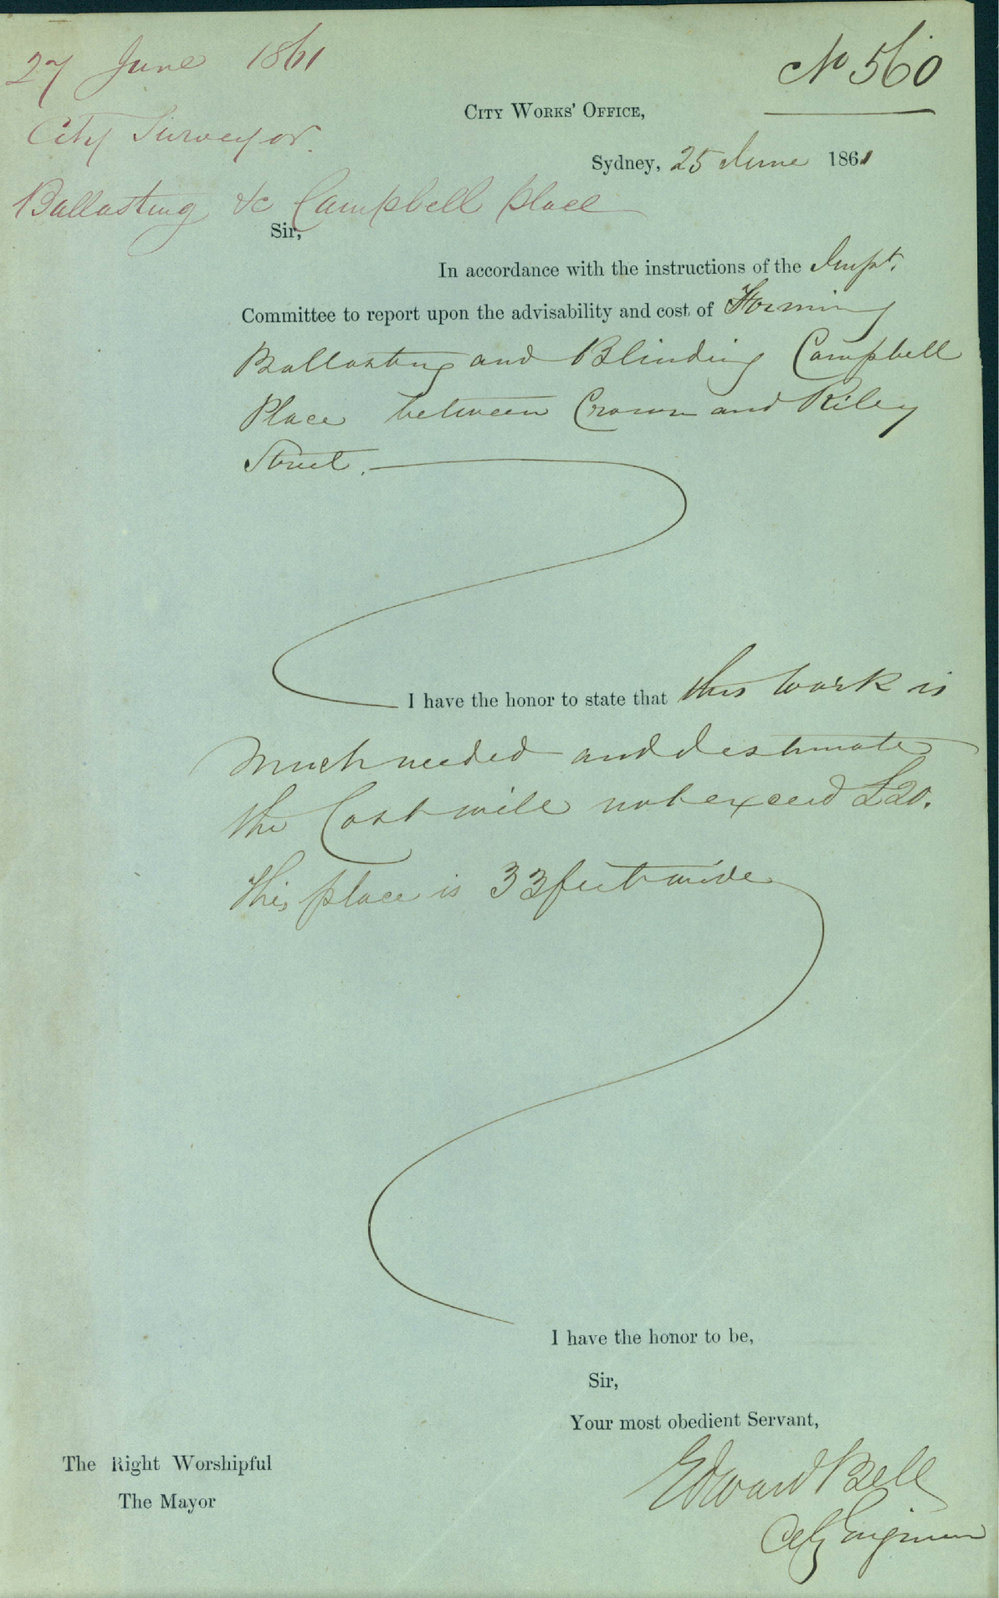 27 June 1861
No 560
City Surveyor.
Ballasting &c Campbell place
CITY WORKS' OFFICE,
Sydney, 25 June 1861
Sir,
In accordance with the instructions of the Impt.
Committee to report upon the advisability and cost of Forming
Ballasting and Blinding Campbell
Place between Crown and Riley
Street.
I have the honor to state that this work is
much needed and I estimate
the Cost will not exceed £20.
This place is 33 feet wide
I have the honor to be,
Sir,
Your most obedient Servant,
Edward Bell
City Engineer
The Right Worshipful
The Mayor